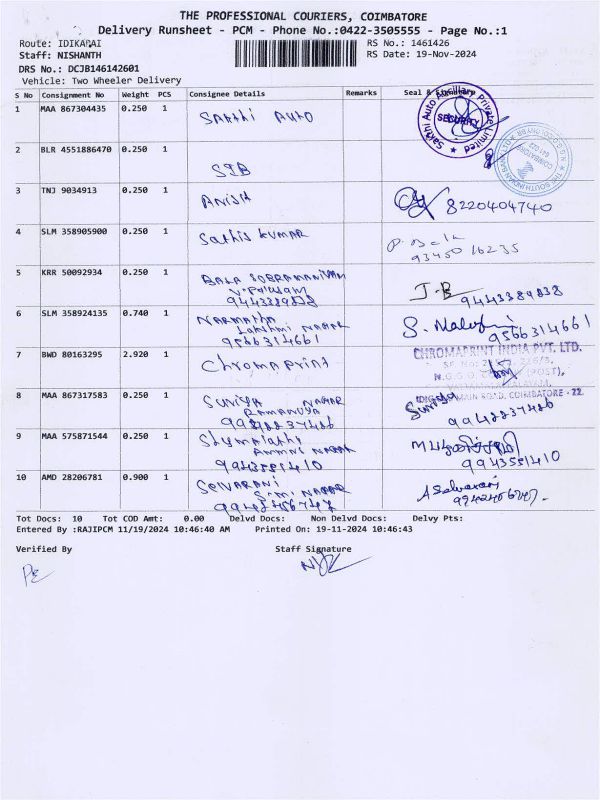 THE PROFESSIONAL COURIERS, COIMBATORE
Delivery Runsheet - PCM - Phone No.:0422-3505555 - Page No.:1
Route: IDIKARAI RS No.: 1461426
Staff: NISHANTH RS Date: 19-Nov-2024
DRS No.: DCJB146142601
Vehicle: Two Wheeler Delivery
S No Consignment No Weight PCS Consignee Details Remarks Seal & Signature
1 MAA 867304435 0.250 1 Sakthi Auto
Sakthi Auto Ancillary Private Limited
SECURITY
2 BLR 4551886470 0.250 1 SIB
COIMBATORE
641 022
3 TNJ 9034913 0.250 1 Anish 8220404740
4 SLM 358905900 0.250 1 Sathis kumar
5 KRR 50092934 0.250 1 BALA SUBRAMANIYAM J.B 9443389838
6 SLM 358924135 0.740 1 Narmatha
Lakshmi Nagar
9566314661 9566314661
7 BWD 80163295 2.920 1 Chromaprint
CHROMAPRINT INDIA PVT. LTD.
8 MAA 867317583 0.250 1 Suriya Nagar
9 MAA 575871544 0.250 1
9943551410 9943551410
10 AMD 28206781 0.900 1 Selvarani A Selvarani
Tot Docs: 10 Tot COD Amt: 0.00 Delvd Docs: Non Delvd Docs: Delvy Pts:
Entered By :RAJIPCM 11/19/2024 10:46:40 AM Printed On: 19-11-2024 10:46:43
Verified By Staff Signature